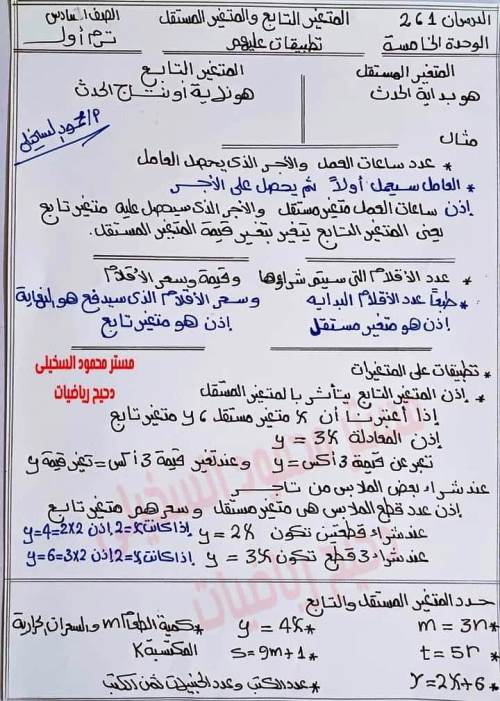 الدرسان 1 & 2 المتغير التابع والمتغير المستقل الصف السادس
الوحدة الخامسة تطبيقات عليهم ترم أول
المتغير المستقل المتغير التابع
هو بداية الحدث هو نهاية أو نتاج الحدث
م/ محمود السخيلى
مثال
* عدد ساعات العمل والأجر الذى يحصل العامل
* العامل سيعمل أولاً ثم يحصل على الأجر
إذن ساعات العمل متغير مستقل والأجر الذى سيحصل عليه متغير تابع
يعنى المتغير التابع يتغير بتغير قيمة المتغير المستقل.
* عدد الأقلام التى سيتم شراؤها وقيمة وسعر الأقلام
* طبعاً عدد الأقلام البدايه وسعر الأقلام الذى سيدفع هو النهاية
إذن هو متغير مستقل إذن هو متغير تابع
مستر محمود السخيلى
دحيح رياضيات
* تطبيقات على المتغيرات
* إذن المتغير التابع يتأثر بالمتغير المستقل
إذا أعتبرنا أن x متغير مستقل ، y متغير تابع
إذن المعادلة y = 3x
تعبر عن قيمة 3 أكس = y وعند تغير قيمة 3 أكس = تغير قيمة y
عند شراء بعض الملابس من تاجر
إذن عدد قطع الملابس هى متغير مستقل وسعرهم متغير تابع
عند شراء قطعتين تكون y = 2x إذا كانت x=2 إذن y=4=2x2
عند شراء 3 قطع تكون y = 3x إذا كانت x=2 إذن y=6=3x2
حدد المتغير المستقل والتابع
m = 3n * y = 4x * كمية الطعام m والسعرات الحرارية
t = 5r * s=9m+1 * المكتسبة k
r=2x+6 * عدد الكتب وعدد الجنيهات ثمن الكتب